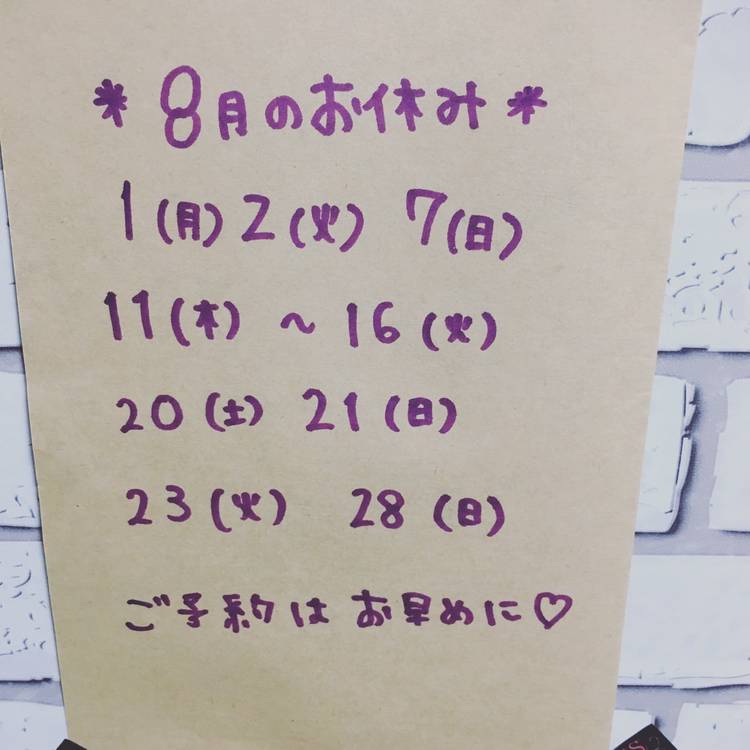 * 8月のお休み *
1(月) 2(火) 7(日)
11(木) ~ 16(火)
20(土) 21(日)
23(火) 28(日)
ご予約は お早めに♡